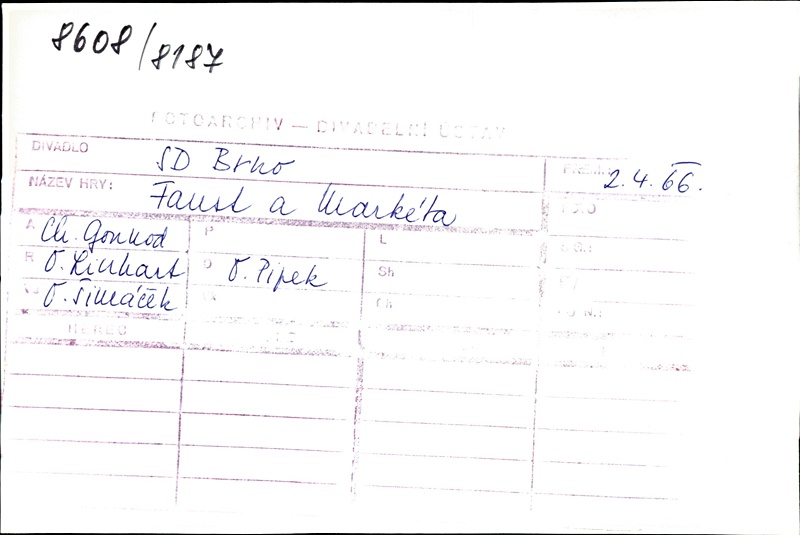 8608/8187
FOTOARCHIV — DIVADELNÍ ÚSTAV
DIVADLO SD Brno 2.4.66.
NÁZEV HRY: Faust a Markéta
A Ch. Gounod P L
R O. Linhart O O. Pipek Sh
O. Šimáček
HEREC